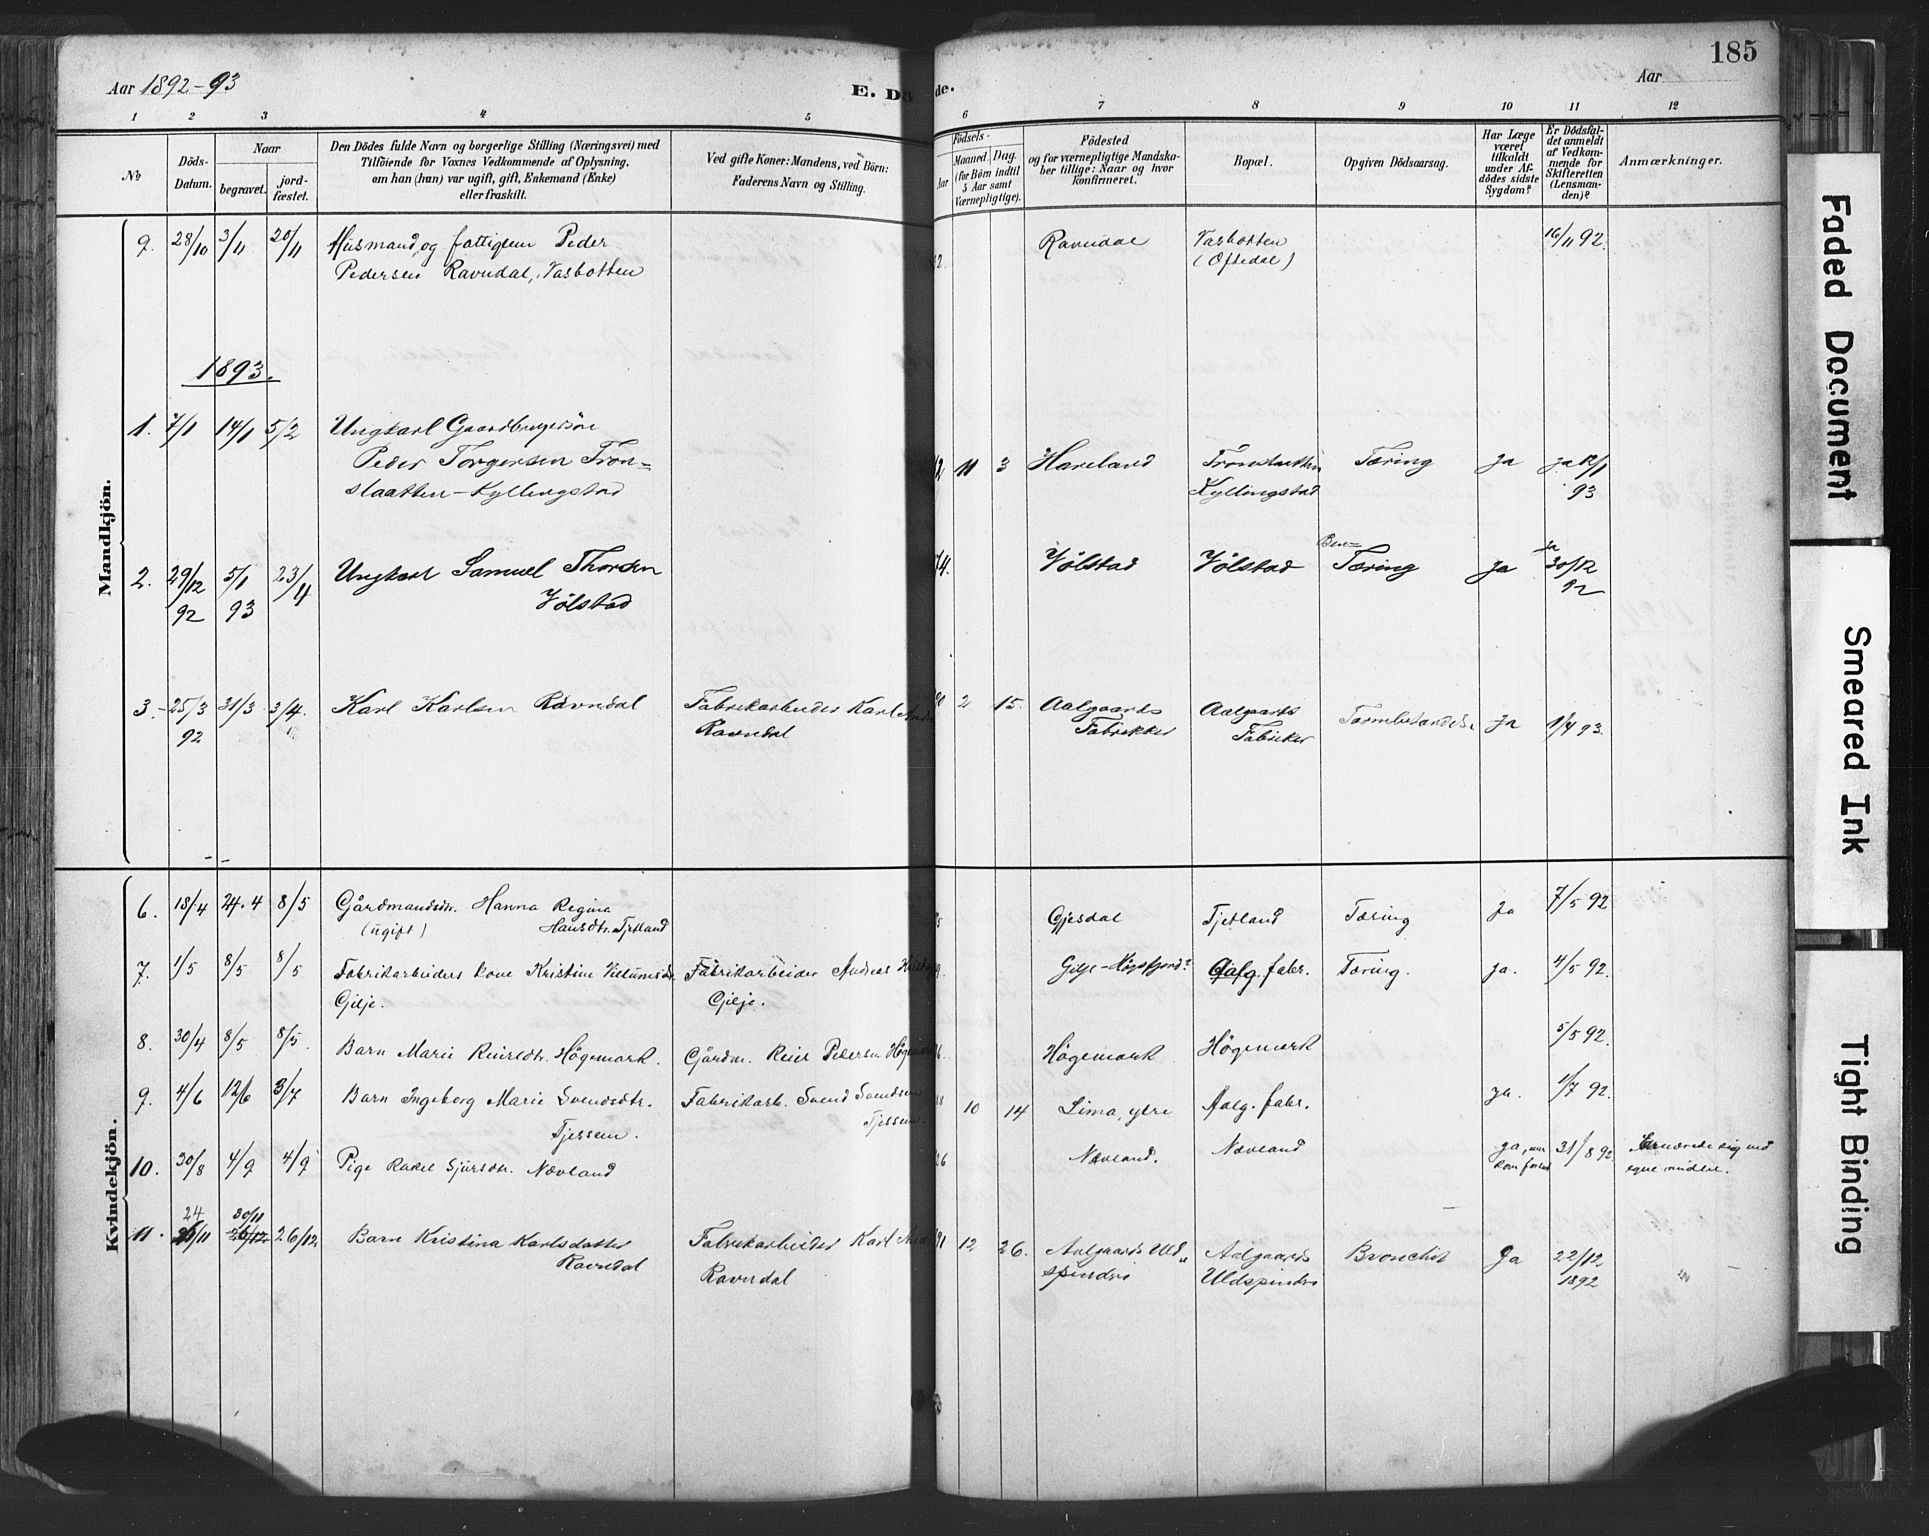 185
Aar 1892-93
E. Dö
de.
Aar
1 2 3 4 5 6 7 8 9 10 11 12
No
Döds-
Datum.
Naar
begravet.
jord-
fæstet.
Den Dödes fulde Navn og borgerlige Stilling (Næringsvei) med
Tilföiende for Voxnes Vedkommende af Oplysning,
om han (hun) var ugift, gift, Enkemand (Enke)
eller fraskilt.
Ved gifte Koner: Mandens, ved Börn:
Faderens Navn og Stilling.
Födsels-
Aar
Maaned. Dag.
(for Börn indtil
5 Aar samt
Værnepligtige).
Födested
og for værnepligtige Mandska-
ber tillige: Naar og hvor
konfirmeret.
Bopæl.
Opgiven Dödsaarsag.
Har Læge
været
tilkaldt
under Af-
dödes sidste
Sygdom?
Er Dödsfal-
det anmeldt
af Vedkom-
mende for
Skifteretten
(Lensman-
den)?
Anmærkninger.
Mandkjön.
9. 28/10 3/11 20/11 Husmand og fattiglem Peder Ravndal Vasbotten 16/11 92.
Pedersen Ravndal, Vasbotten (Oftedal)
1893.
1. 7/1 14/1 5/2 Ungkarl Gaardbrugersön
Peder Torgersen Tron= 11 3 Haveland Tæring Ja ja 12/1
slaatten-Kyllingstad Kyllingstad 93
2. 29/12 5/1 23/4 Ungkarl Samuel Thorsen 74. Vølstad Vølstad Tæring Ja ja 30/12
92 93 Vølstad 92
3. 25/3 31/3 3/4. Karl Karlsen Ravndal Fabrikarbeider Karl 2 15. Aalgaards Aalgaards Ja 1/4 93.
92 Ravndal Fabrikker Fabriker
Kvindekjön.
6. 18/4 24.4 8/5 Gårdmandsdr. Hanna Regina Gjesdal Tjetland Tæring Ja 7/5 92
(ugift) Hansdtr. Tjetland
7. 1/5 8/5 8/5 Fabrikarbeiders kone Kristine Fabrikarbeider Andreas Gilje-Høgsfjord? Aalg. fabr. Tæring. ja. 4/5 92.
Gilje. Gilje.
8. 30/4 8/5 8/5. Barn Marie Reiersdtr. Högemork. Gårdm. Reier Pedersen Högemork Högemork 5/5 92.
9. 4/6 12/6 3/7 Barn Ingeborg Marie Svendsdtr. Fabrikarb. Svend Svendsen 10 14 Lima, ytre Aalg. fabr. ja. 1/7 92.
Tjessem. Tjessem.
10. 30/8 4/9 4/9 Pige Rakel Sjursdtr. Nævland Nævland. Nævland ja, 31/8 92 Ernærede sig ved
egne midler.
24 30/11
11. /11 26/12 26/12 Barn Kristina Karlsdatter Fabrikarbeider Karl 91 12 26. Aalgaards Uld Aalgaards Bronchit Ja 22/12
Ravndal Ravndal spinderi Uldspinderi 1892
Faded Document
Smeared Ink
Tight Binding